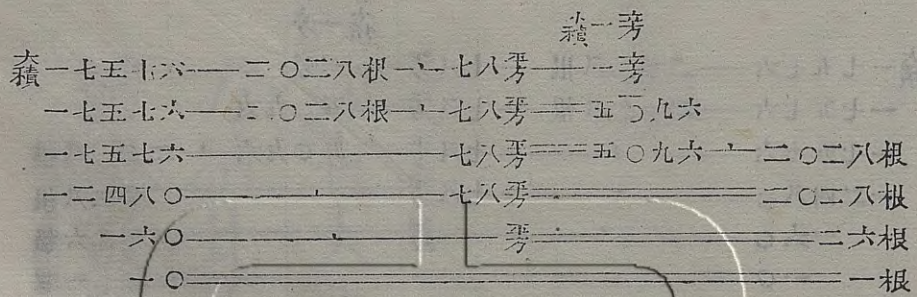 小積一立方
大積一七五七六——二〇二八根—、—七八平方——一立方
一七五七六——二〇二八根—、—七八平方==五〇九六
一七五七六——七八平方==五〇九六—、—二〇二八根
一二四八〇—、—七八平方==二〇二八根
一六〇—、—平方==二六根
一〇==一根